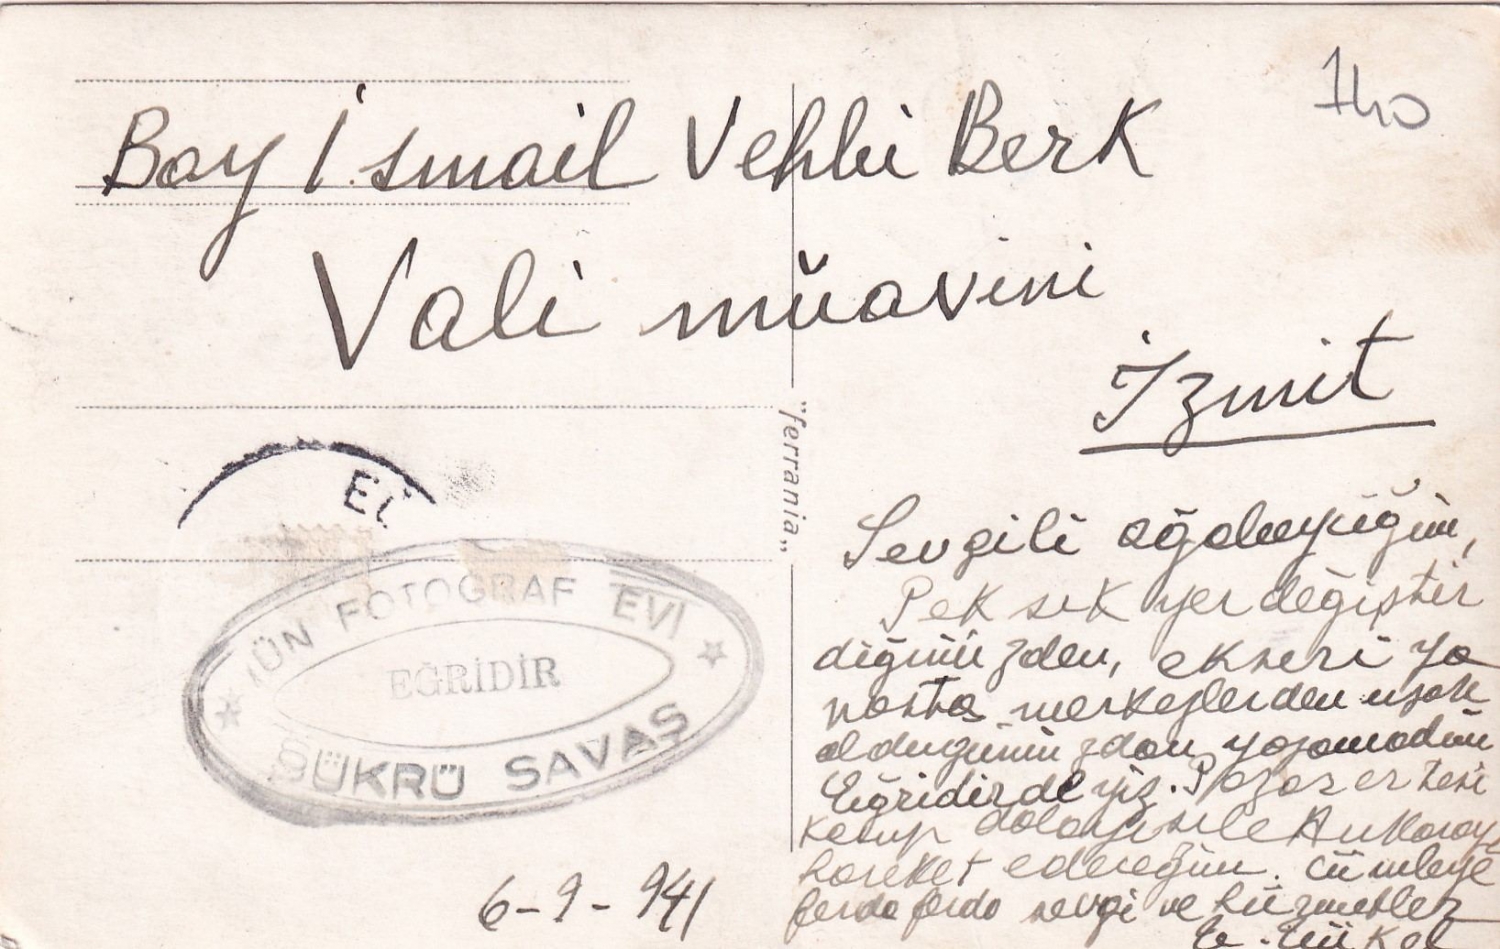 140
Bay İsmail Vehbi Berk
Vali müavini
İzmit
"ferrania"
EĞ
ÜN FOTOGRAF EVİ
EĞRİDİR
ŞÜKRÜ SAVAŞ
6-9-941
Sevgili ağabeyciğim,
Pek sık yer değiştir
diğimizden, ekseri ya
nosta merkezlerden uzak
olduğumuzdan yazamadım
Eğridirdeyiz. Pazar ertesi
dolayısile Ankaraya
hareket edeceğim. Cümleye
ferda ferda sevgi ve hürmetler